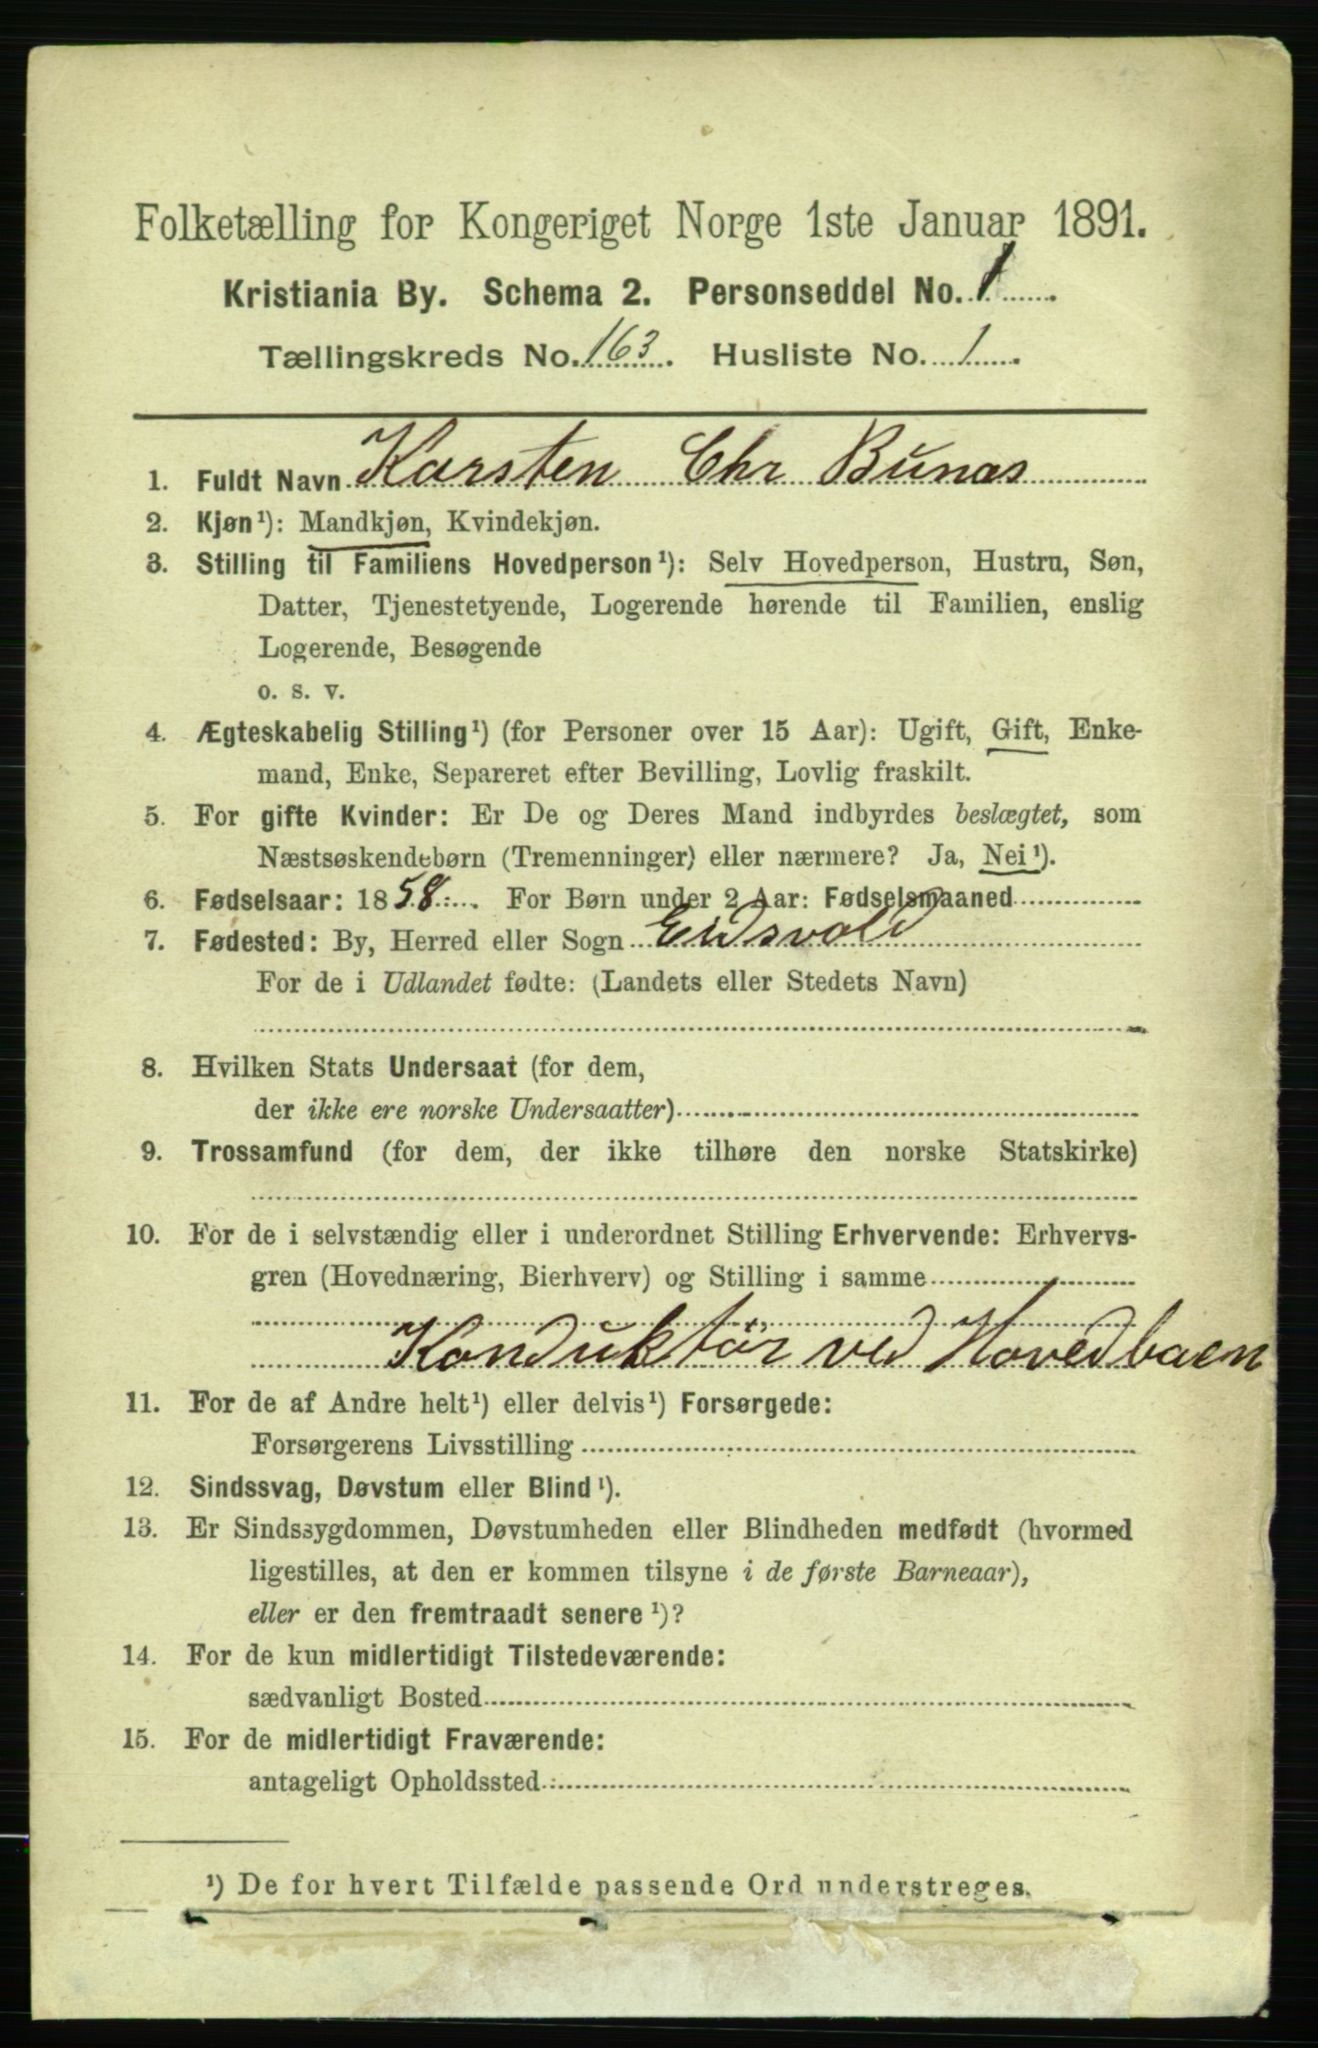 Folketælling for Kongeriget Norge 1ste Januar 1891.
Kristiania By. Schema 2. Personseddel No. 1
Tællingskreds No. 163. Husliste No. 1
1. Fuldt Navn Karsten Chr Bunæs
2. Kjøn¹): Mandkjøn, Kvindekjøn.
3. Stilling til Familiens Hovedperson¹): Selv Hovedperson, Hustru, Søn,
Datter, Tjenestetyende, Logerende hørende til Familien, enslig
Logerende, Besøgende
o. s. v.
4. Ægteskabelig Stilling¹) (for Personer over 15 Aar): Ugift, Gift, Enke-
mand, Enke, Separeret efter Bevilling, Lovlig fraskilt.
5. For gifte Kvinder: Er De og Deres Mand indbyrdes beslægtet, som
Næstsøskendebørn (Tremenninger) eller nærmere? Ja, Nei¹).
6. Fødselsaar: 1858. For Børn under 2 Aar: Fødselsmaaned
7. Fødested: By, Herred eller Sogn Eidsvold
For de i Udlandet fødte: (Landets eller Stedets Navn)
8. Hvilken Stats Undersaat (for dem,
der ikke ere norske Undersaatter)
9. Trossamfund (for dem, der ikke tilhøre den norske Statskirke)
10. For de i selvstændig eller i underordnet Stilling Erhvervende: Erhvervs-
gren (Hovednæring, Bierhverv) og Stilling i samme
Konduktör ved Hovedbaen
11. For de af Andre helt¹) eller delvis¹) Forsørgede:
Forsørgerens Livsstilling
12. Sindssvag, Døvstum eller Blind¹).
13. Er Sindssygdommen, Døvstumheden eller Blindheden medfødt (hvormed
ligestilles, at den er kommen tilsyne i de første Barneaar),
eller er den fremtraadt senere¹)?
14. For de kun midlertidigt Tilstedeværende:
sædvanligt Bosted
15. For de midlertidigt Fraværende:
antageligt Opholdssted
¹) De for hvert Tilfælde passende Ord understreges.